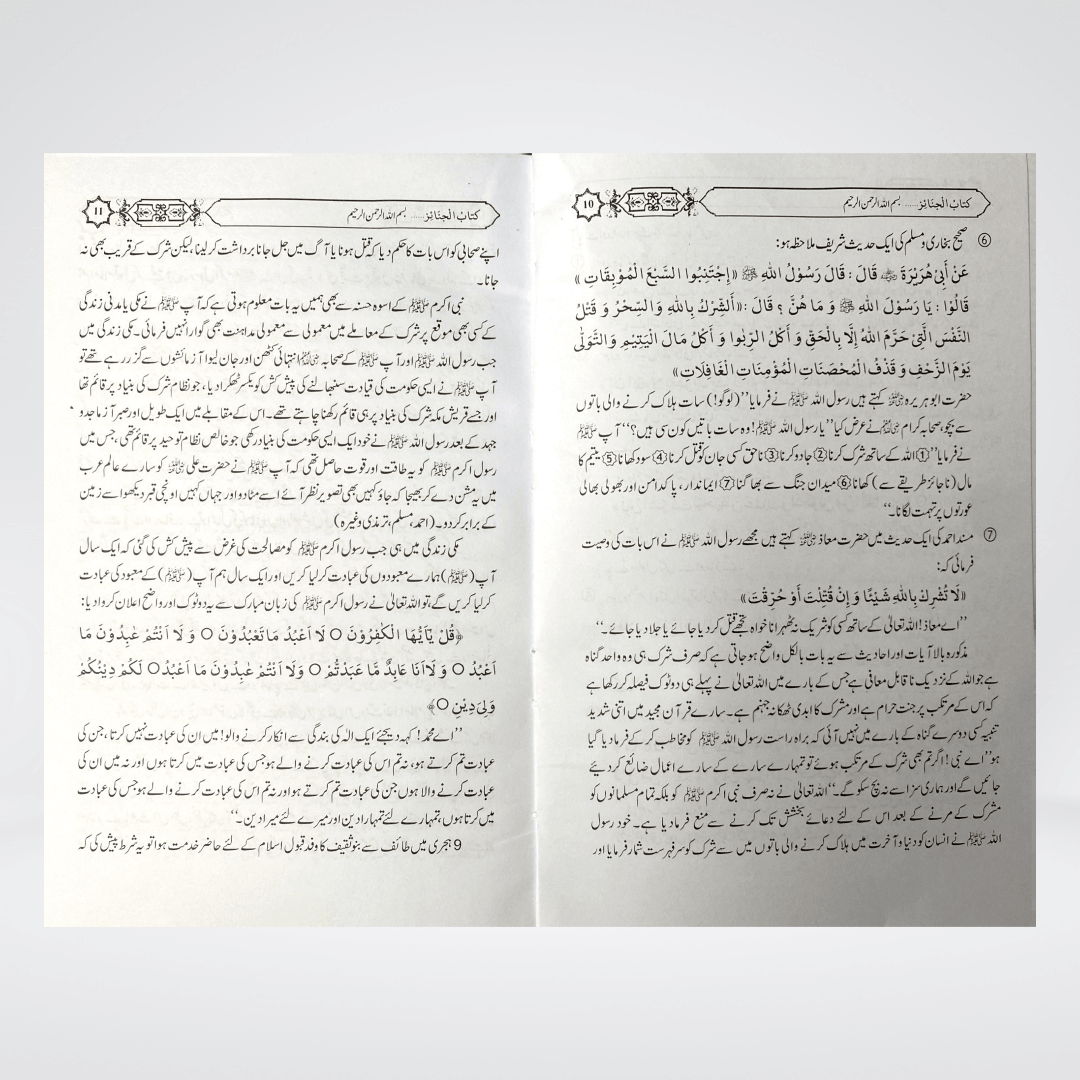 10 کتابُ الْجنَائِز...... بسم اللہ الرحمن الرحیم
⑥ صحیح بخاری و مسلم کی ایک حدیث شریف ملاحظہ ہو:
عَنْ أَبِیْ ھُرَیْرَۃَ ﷺ قَالَ : قَالَ رَسُوْلُ اللّٰہِ ﷺ ((اِجْتَنِبُوا السَّبْعَ الْمُوْبِقَاتِ))
قَالُوْا : یَا رَسُوْلَ اللّٰہِ ﷺ وَ مَا ھُنَّ ؟ قَالَ :((أَلشِّرْکُ بِاللّٰہِ وَالسِّحْرُ وَ قَتْلُ
النَّفْسَ الَّتِیْ حَرَّمَ اللّٰہُ إِلَّا بِالْحَقِّ وَ أَکْلُ الرِّبٰوا وَ أَکْلُ مَالَ الْیَتِیْمِ وَالتَّوَلّٰی
یَوْمَ الزَّحْفِ وَ قَذْفُ الْمُحْصَنَاتِ الْمُؤْمِنَاتِ الْغَافِلَاتِ))
حضرت ابو ہریرہ رضی اللہ عنہ کہتے ہیں رسول اللہ ﷺ نے فرمایا ’’(لوگو!) سات ہلاک کرنے والی باتوں
سے بچو،صحابہ کرام رضی اللہ عنہم نے عرض کیا ’’یا رسول اللہ ﷺ! وہ سات باتیں کون سی ہیں؟‘‘ آپ ﷺ
نے فرمایا ’’① اللہ کے ساتھ شرک کرنا ② جادو کرنا ③ ناحق کسی جان کو قتل کرنا ④ سود کھانا ⑤ یتیم کا
مال (ناجائز طریقے سے) کھانا ⑥ میدان جنگ سے بھاگنا ⑦ ایماندار، پاکدامن اور بھولی بھالی
عورتوں پر تہمت لگانا۔‘‘
⑦ مسند احمد کی ایک حدیث میں حضرت معاذ رضی اللہ عنہ کہتے ہیں مجھے رسول اللہ ﷺ نے اس بات کی وصیت
فرمائی کہ:
((لَا تُشْرِکْ بِاللّٰہِ شَیْئًا وَ إِنْ قُتِلْتَ أَوْ حُرِّقْتَ))
’’اے معاذ! اللہ تعالیٰ کے ساتھ کسی کو شریک نہ ٹھہرانا خواہ تجھے قتل کر دیا جائے یا جلا دیا جائے۔‘‘
مذکورہ بالا آیات اور احادیث سے یہ بات بالکل واضح ہو جاتی ہے کہ صرف شرک ہی وہ واحد گناہ
ہے جو اللہ کے نزدیک ناقابل معافی ہے جس کے بارے میں اللہ تعالیٰ نے پہلے ہی دو ٹوک فیصلہ کر رکھا ہے
کہ اس کے مرتکب پر جنت حرام ہے اور مشرک کا ابدی ٹھکانہ جہنم ہے۔ سارے قرآن مجید میں اتنی شدید
تنبیہ کسی دوسرے گناہ کے بارے میں نہیں آئی کہ براہ راست رسول اللہ ﷺ کو مخاطب کر کے فرما دیا گیا
ہو ’’اے نبی! اگر تم بھی شرک کے مرتکب ہوئے تو تمہارے سارے کے سارے اعمال ضائع کر دئیے
جائیں گے اور ہماری سزا سے نہ بچ سکو گے۔‘‘ اللہ تعالیٰ نے نہ صرف نبی اکرم ﷺ کو بلکہ تمام مسلمانوں کو
مشرک کے مرنے کے بعد اس کے لئے دعائے بخشش تک کرنے سے منع فرما دیا ہے۔ خود رسول
اللہ ﷺ نے انسان کو دنیا و آخرت میں ہلاک کرنے والی باتوں میں سے شرک کو سرفہرست شمار فرمایا اور
11 کتابُ الْجنَائِز...... بسم اللہ الرحمن الرحیم
اپنے صحابی کو اس بات کا حکم دیا کہ قتل ہونا یا آگ میں جل جانا برداشت کر لینا، لیکن شرک کے قریب بھی نہ
جانا۔
نبی اکرم ﷺ کے اسوہ حسنہ سے بھی ہمیں یہ بات معلوم ہوتی ہے کہ آپ ﷺ نے مکی یا مدنی زندگی
کے کسی بھی موقع پر شرک کے معاملے میں معمولی سے معمولی مداہنت بھی گوارا نہیں فرمائی۔ مکی زندگی میں
جب رسول اللہ ﷺ اور آپ ﷺ کے صحابہ رضی اللہ عنہم انتہائی کٹھن اور جان لیوا آزمائشوں سے گزر رہے تھے تو
آپ ﷺ نے ایسی حکومت کی قیادت سنبھالنے کی پیش کش کو یکسر ٹھکرا دیا، جو نظام شرک کی بنیاد پر قائم تھا
اور جسے قریش مکہ شرک کی بنیاد پر ہی قائم رکھنا چاہتے تھے۔ اس کے مقابلے میں ایک طویل اور صبر آزما جدو
جہد کے بعد رسول اللہ ﷺ نے خود ایک ایسی حکومت کی بنیاد رکھی جو خالص نظام توحید پر قائم تھی، جس میں
رسول اکرم ﷺ کو یہ طاقت اور قوت حاصل تھی کہ آپ ﷺ نے حضرت علی رضی اللہ عنہ کو سارے عالم عرب
میں یہ مشن دے کر بھیجا کہ جاؤ کہیں بھی تصویر نظر آئے اسے مٹا دو اور جہاں کہیں اونچی قبر دیکھو اسے زمین
کے برابر کر دو۔ (احمد، مسلم، ترمذی وغیرہ)
مکی زندگی میں ہی جب رسول اکرم ﷺ کو مصالحت کی غرض سے پیش کش کی گئی کہ ایک سال
آپ (ﷺ) ہمارے معبودوں کی عبادت کر لیا کریں اور ایک سال ہم آپ (ﷺ) کے معبود کی عبادت
کر لیا کریں گے، تو اللہ تعالیٰ نے رسول اکرم ﷺ کی زبان مبارک سے یہ دو ٹوک اور واضح اعلان کروا دیا:
﴿قُلْ یٰٓاَیُّھَا الْکٰفِرُوْنَ ○ لَا اَعْبُدُ مَا تَعْبُدُوْنَ ○ وَ لَا اَنْتُمْ عٰبِدُوْنَ مَا
اَعْبُدُ ○ وَ لَا اَنَا عَابِدٌ مَّا عَبَدْتُّمْ ○ وَلَا اَنْتُمْ عٰبِدُوْنَ مَا اَعْبُدُ ○ لَکُمْ دِیْنُکُمْ
وَلِیَ دِیْنِ ○﴾
’’اے محمد! کہہ دیجئے ایک الٰہ کی بندگی سے انکار کرنے والو! میں ان کی عبادت نہیں کرتا، جن کی
عبادت تم کرتے ہو، نہ تم اس کی عبادت کرنے والے ہو جس کی عبادت میں کرتا ہوں اور نہ میں ان کی
عبادت کرنے والا ہوں جن کی عبادت تم کرتے ہو اور نہ تم اس کی عبادت کرنے والے ہو جس کی عبادت
میں کرتا ہوں، تمہارے لئے تمہارا دین اور میرے لئے میرا دین۔‘‘
9 ہجری میں طائف سے بنو ثقیف کا وفد قبول اسلام کے لئے حاضر خدمت ہوا تو یہ شرط پیش کی کہ